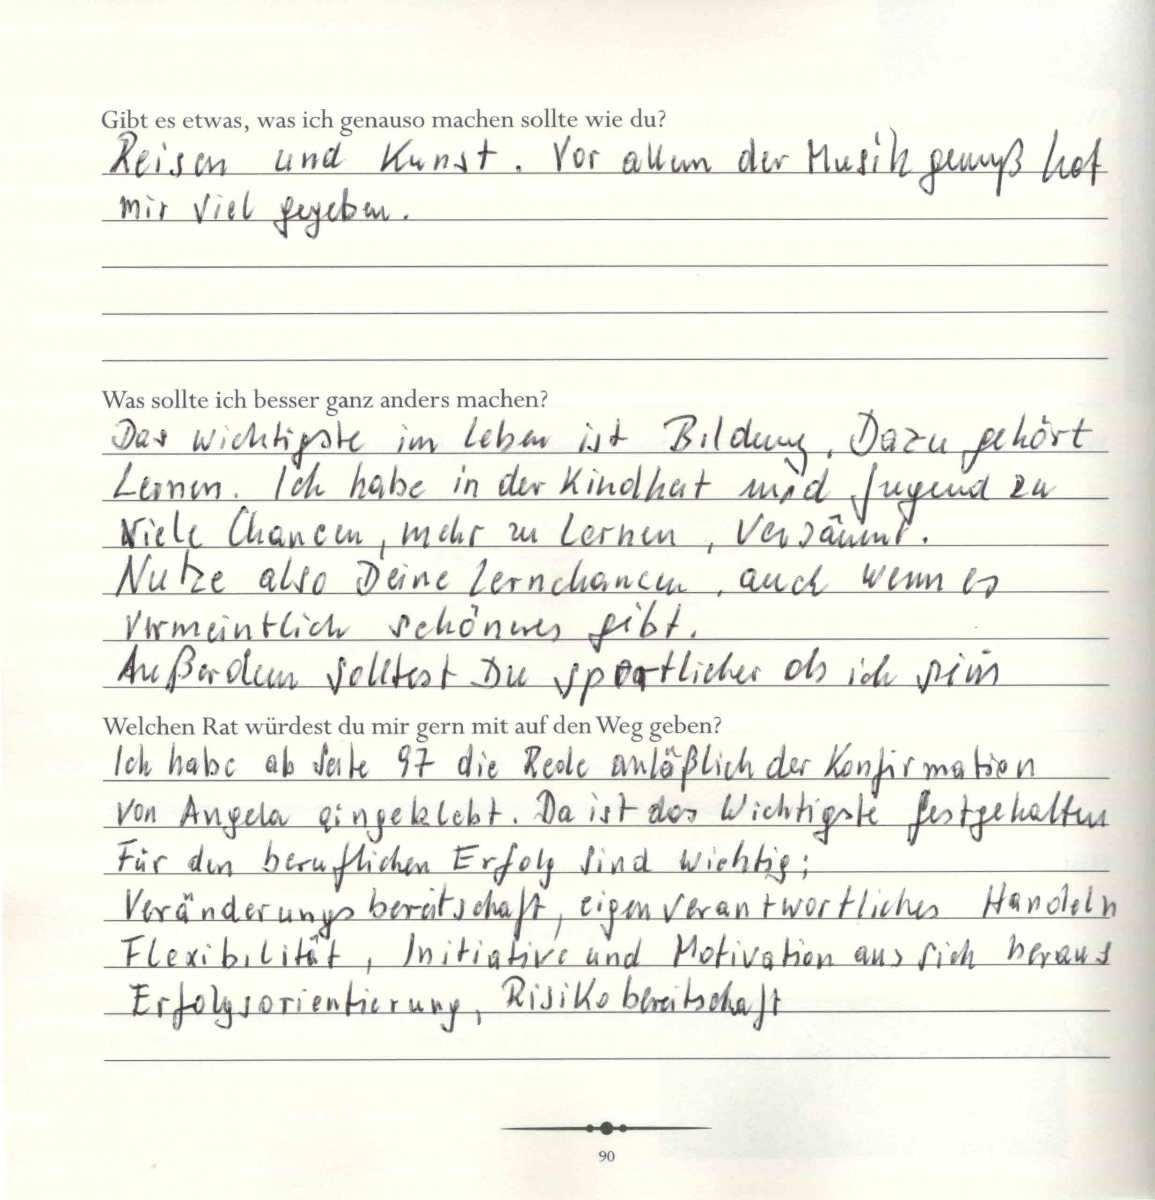 Gibt es etwas, was ich genauso machen sollte wie du?
Reisen und Kunst. Vor allem der Musik genuß hat
mir viel gegeben.
Was sollte ich besser ganz anders machen?
Das wichtigste im Leben ist Bildung. Dazu gehört
Lernen. Ich habe in der Kindheit und Jugend zu
Viele Chancen, mehr zu Lernen, Versäumt.
Nutze also Deine Lernchancen, auch wenn es
Vermeintlich schöneres gibt.
Außerdem solltest Du sportlicher als ich sein
Welchen Rat würdest du mir gern mit auf den Weg geben?
Ich habe ab Seite 97 die Rede anläßlich der Konfirmation
von Angela eingeklebt. Da ist das Wichtigste festgehalten
Für den beruflichen Erfolg sind wichtig:
Veränderungsbereitschaft, eigenverantwortliches Handeln
Flexibilität, Initiative und Motivation aus sich heraus
Erfolgsorientierung, Risikobereitschaft
90